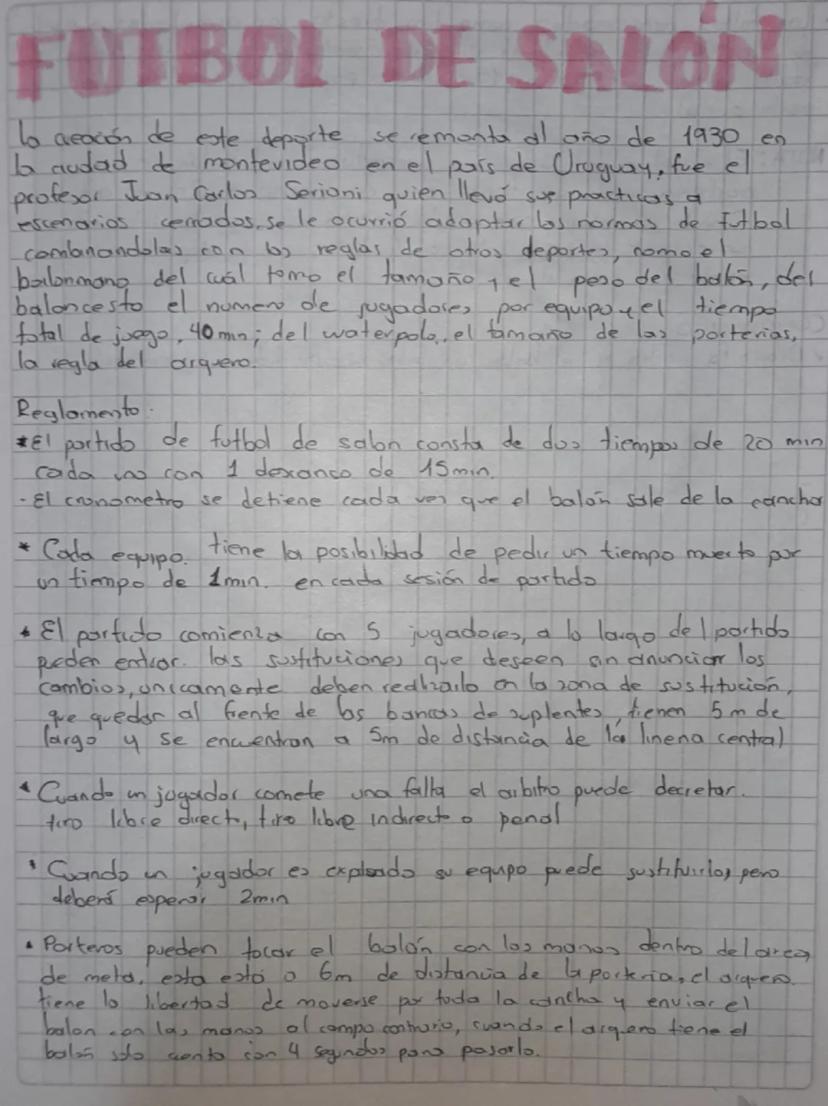 FUTBOL DE SALÓN
la creación de este deporte se remonta al año de 1930 en
la ciudad de montevideo en el país de Uruguay, fue el
profesor Juan Carlos Serioni quien llevó sus practicas a
escenarios cerrados, se le ocurrió adaptar las normas de futbol
combinandolas con las reglas de otros deportes, como el
balonmano del cuál tomo el tamaño y el peso del balón, del
baloncesto el numero de jugadores por equipo y el tiempo
total de juego, 40 min; del waterpolo, el tamaño de las porterias,
la regla del arquero.
Reglamento.
*El partido de futbol de salon consta de dos tiempos de 20 min
cada uno con 1 descanso de 15min.
- El cronometro se detiene cada vez que el balón sale de la cancha
* Cada equipo. tiene la posibilidad de pedir un tiempo muerto por
un tiempo de 1min. en cada sesión de partido
* El partido comienza con 5 jugadores, a lo largo del partido
pueden entrar. las sustituciones que deseen sin anunciar los
cambios, unicamente deben realizarlo en la zona de sustitución,
que quedan al frente de los bancas de suplentes, tienen 5m de
largo y se encuentran a 5m de distancia de la linena central
* Cuando un jugador comete una falta el arbitro puede decretar.
tiro libre direct, tiro libre indirecto o penal
* Cuando un jugador es explsado su equipo puede sustituirlo, pero
deberá esperar 2min
• Porteros pueden tocar el balón con las manos dentro del area
de meta, esta está a 6m de distancia de la porteria, el arquero.
tiene la libertad de moverse por toda la cancha y enviar el
balon con las manos al campo contrario, cuando el arquero tiene el
balón solo cuenta con 4 segundos para pasarlo.